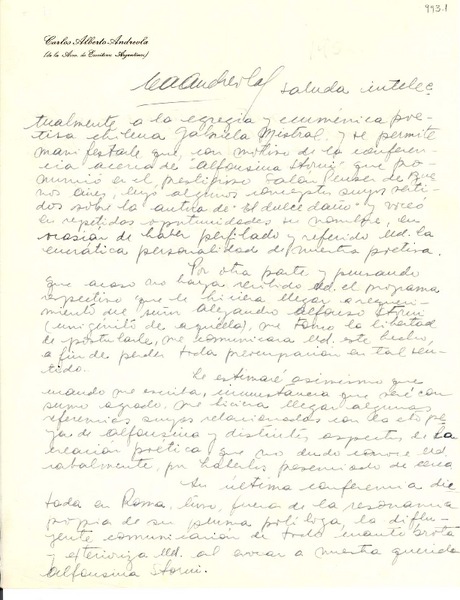 993.1
Carlos Alberto Andreola
(de la Asoc. de Escritores Argentinos)
CAAndreola saluda intelec-
tualmente a la egregia y ecuménica poe-
tisa chilena Gabriela Mistral, y se permite
manifestarle que, con motivo de la conferen-
cia acerca de "Alfonsina Storni" que pro-
nunció en el prestigioso Salón Peuser de Bue-
nos Aires, leyó algunos conceptos suyos verti-
dos sobre la autora de "El dulce daño" y vocó
en repetidas oportunidades su nombre, en
ocasión de haber perfilado y referido Ud. la
cuerática personalidad de nuestra poetisa.
Por otra parte y pensando
que acaso no haya recibido Ud. el programa
respectivo que le hiciera llegar a requeri-
miento del señor Alejandro Alfonso Storni
(unigénito de aquélla), me tomo la libertad
de postularle, me comunicara Ud. este hecho,
a fin de perder toda preocupación en tal sen-
tido.
Le estimaré asimismo que
cuando me escriba, circunstancia que será con
sumo agrado, me hiciera llegar algunas
referencias suyas relacionadas con la
de Alfonsina y distintos aspectos de la
creación poética que no dudo conoce Ud.
cabalmente, por haberlos presenciado de cerca
Su última conferencia dic-
tada en Roma, tuvo, fuera de la resonancia
propia de su pluma políloga, la
comunicación de todo cuanto brota
y exterioriza Ud. al evocar a nuestra querida
Alfonsina Storni.